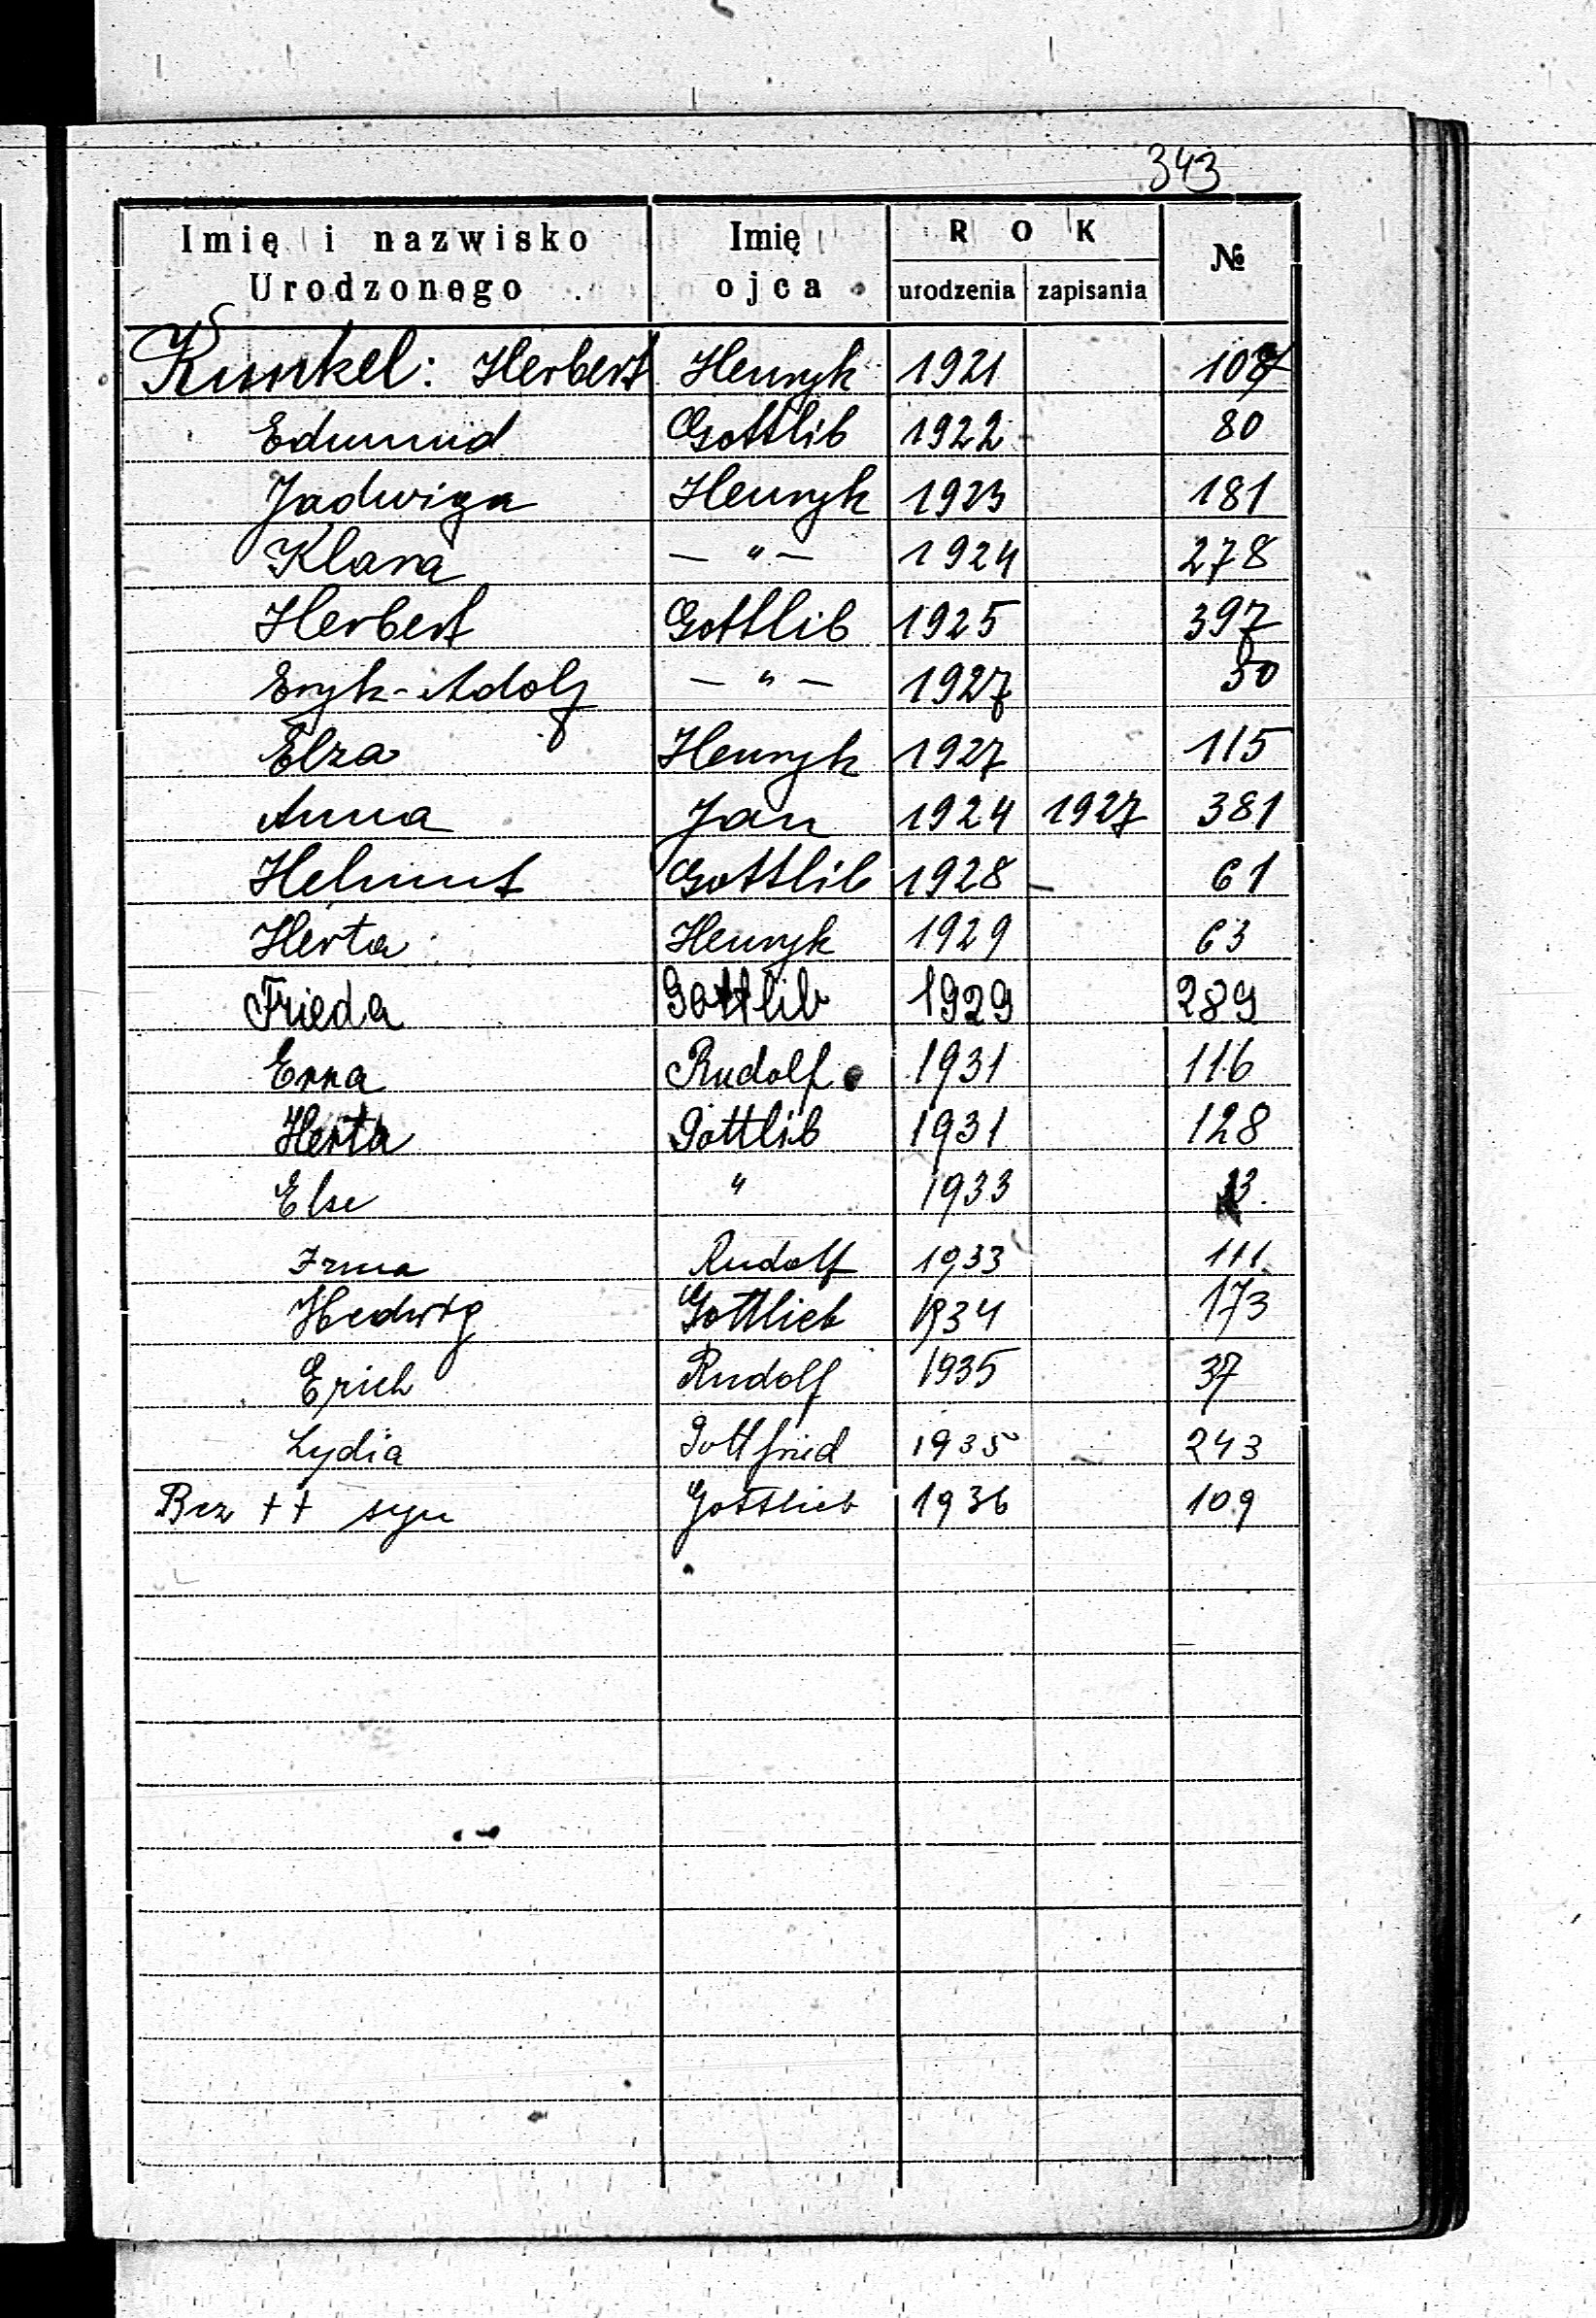 343
Imię i nazwisko Urodzonego Imię ojca ROK urodzenia zapisania №
Kunkel: Herbert Henryk 1921
Edmund Gottlib 1922 80
Jadwiga Henryk 1923 181
Klara — " — 1924 278
Herbert Gottlib 1925 397
Eryk-Adolf — " — 1927 50
Elza Henryk 1927 115
Anna Jan 1924 1927 381
Helmut Gottlib 1928 61
Herta Henryk 1929 63
Frieda Gottlib 1929 289
Erna Rudolf 1931 116
Herta Gottlib 1931 128
Else " 1933
Irma Rudolf 1933 111
Hedwig Gottlieb 1934 173
Erich Rudolf 1935 37
Lydia Gottfried 1935 243
Bez ++ syn Gottlieb 1936 109